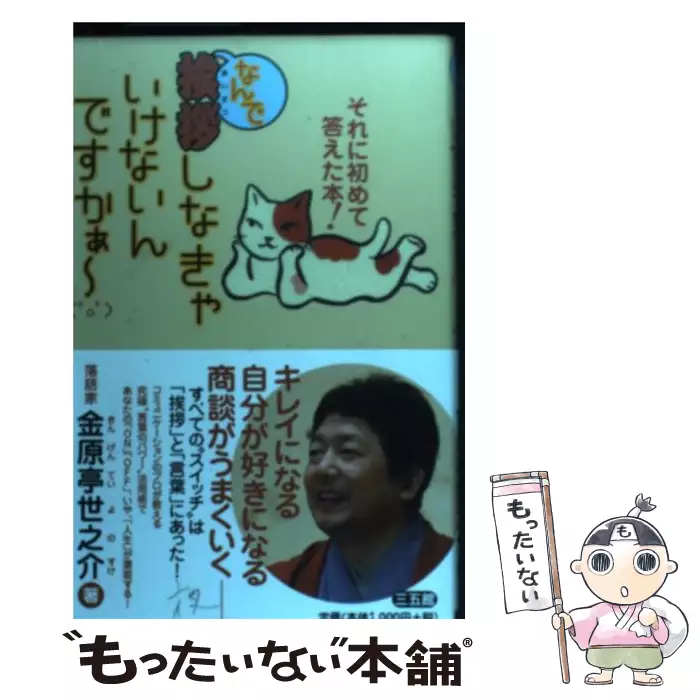 なんで
挨拶しなきゃ
いけないん
ですかぁ～
それに初めて
答えた本!
キレイになる
自分が好きになる
商談がうまくいく
すべての“スイッチ”は
「挨拶」と「言葉」にあった!
コミュニケーションのプロが教える
落語家 金原亭世之介 著
きんげんていよのすけ
三五館
定価(本体1,000円+税)
もったいない
も
“もったいない”本舗®